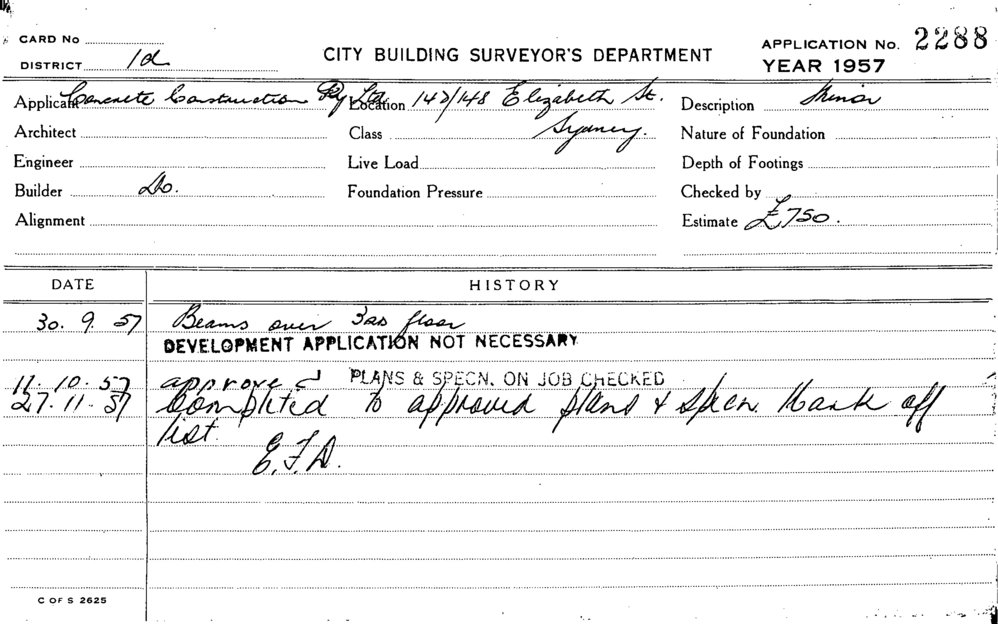 CARD No
CITY BUILDING SURVEYOR'S DEPARTMENT
APPLICATION No. 2288
DISTRICT 1d
YEAR 1957
Applicant Concrete Construction Pty Ltd Location 142/148 Elizabeth St. Description Minor
Architect Class Sydney. Nature of Foundation
Engineer Live Load Depth of Footings
Builder Do. Foundation Pressure Checked by
Alignment Estimate £750.
DATE HISTORY
30. 9. 57 Beams over 3rd floor
DEVELOPMENT APPLICATION NOT NECESSARY
11. 10. 57 approved PLANS & SPECN. ON JOB CHECKED
27. 11. 57 Completed to approved plans & specn. Mark off
list.
C OF S 2625